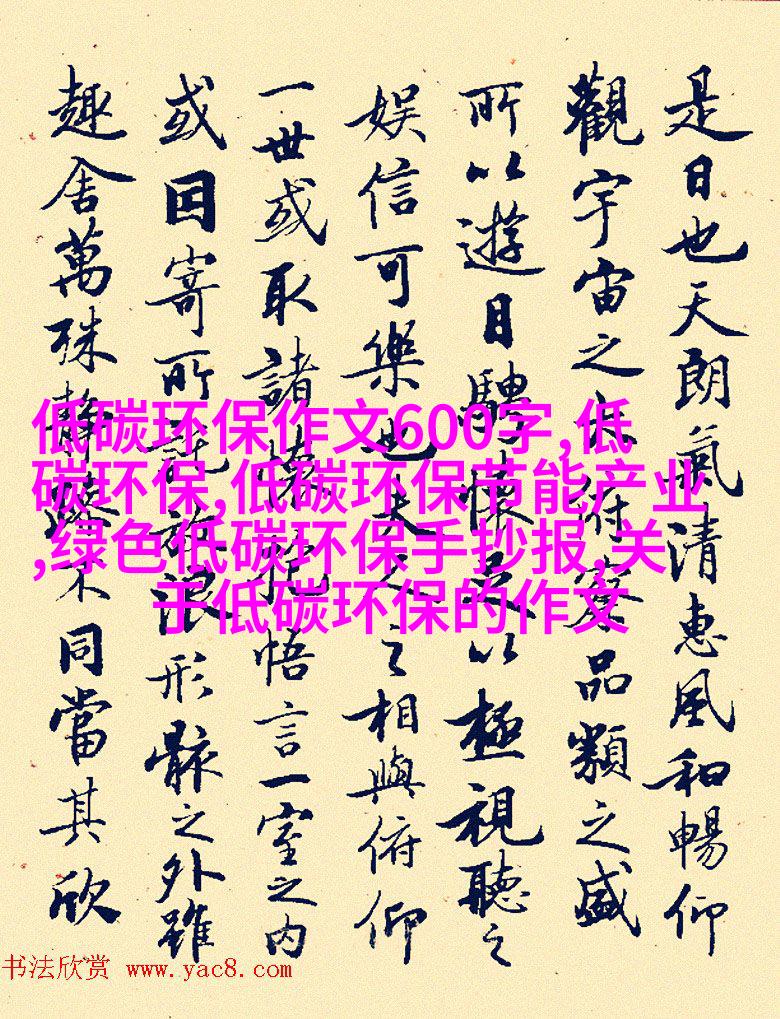 是日也天朗氣清惠風和暢仰
觀宇宙之大俯察品類之盛
所以遊目騁懷足以極視聽之
娛信可樂也夫人之相與俯仰
一世或取諸懷抱悟言一室之内
或因寄所託放浪形骸之外雖
趣舍萬殊靜躁不同當其欣
低碳环保作文600字,低
碳环保,低碳环保节能产业
,绿色低碳环保手抄报,关
于低碳环保的作文
书法欣赏 www.yac8.com